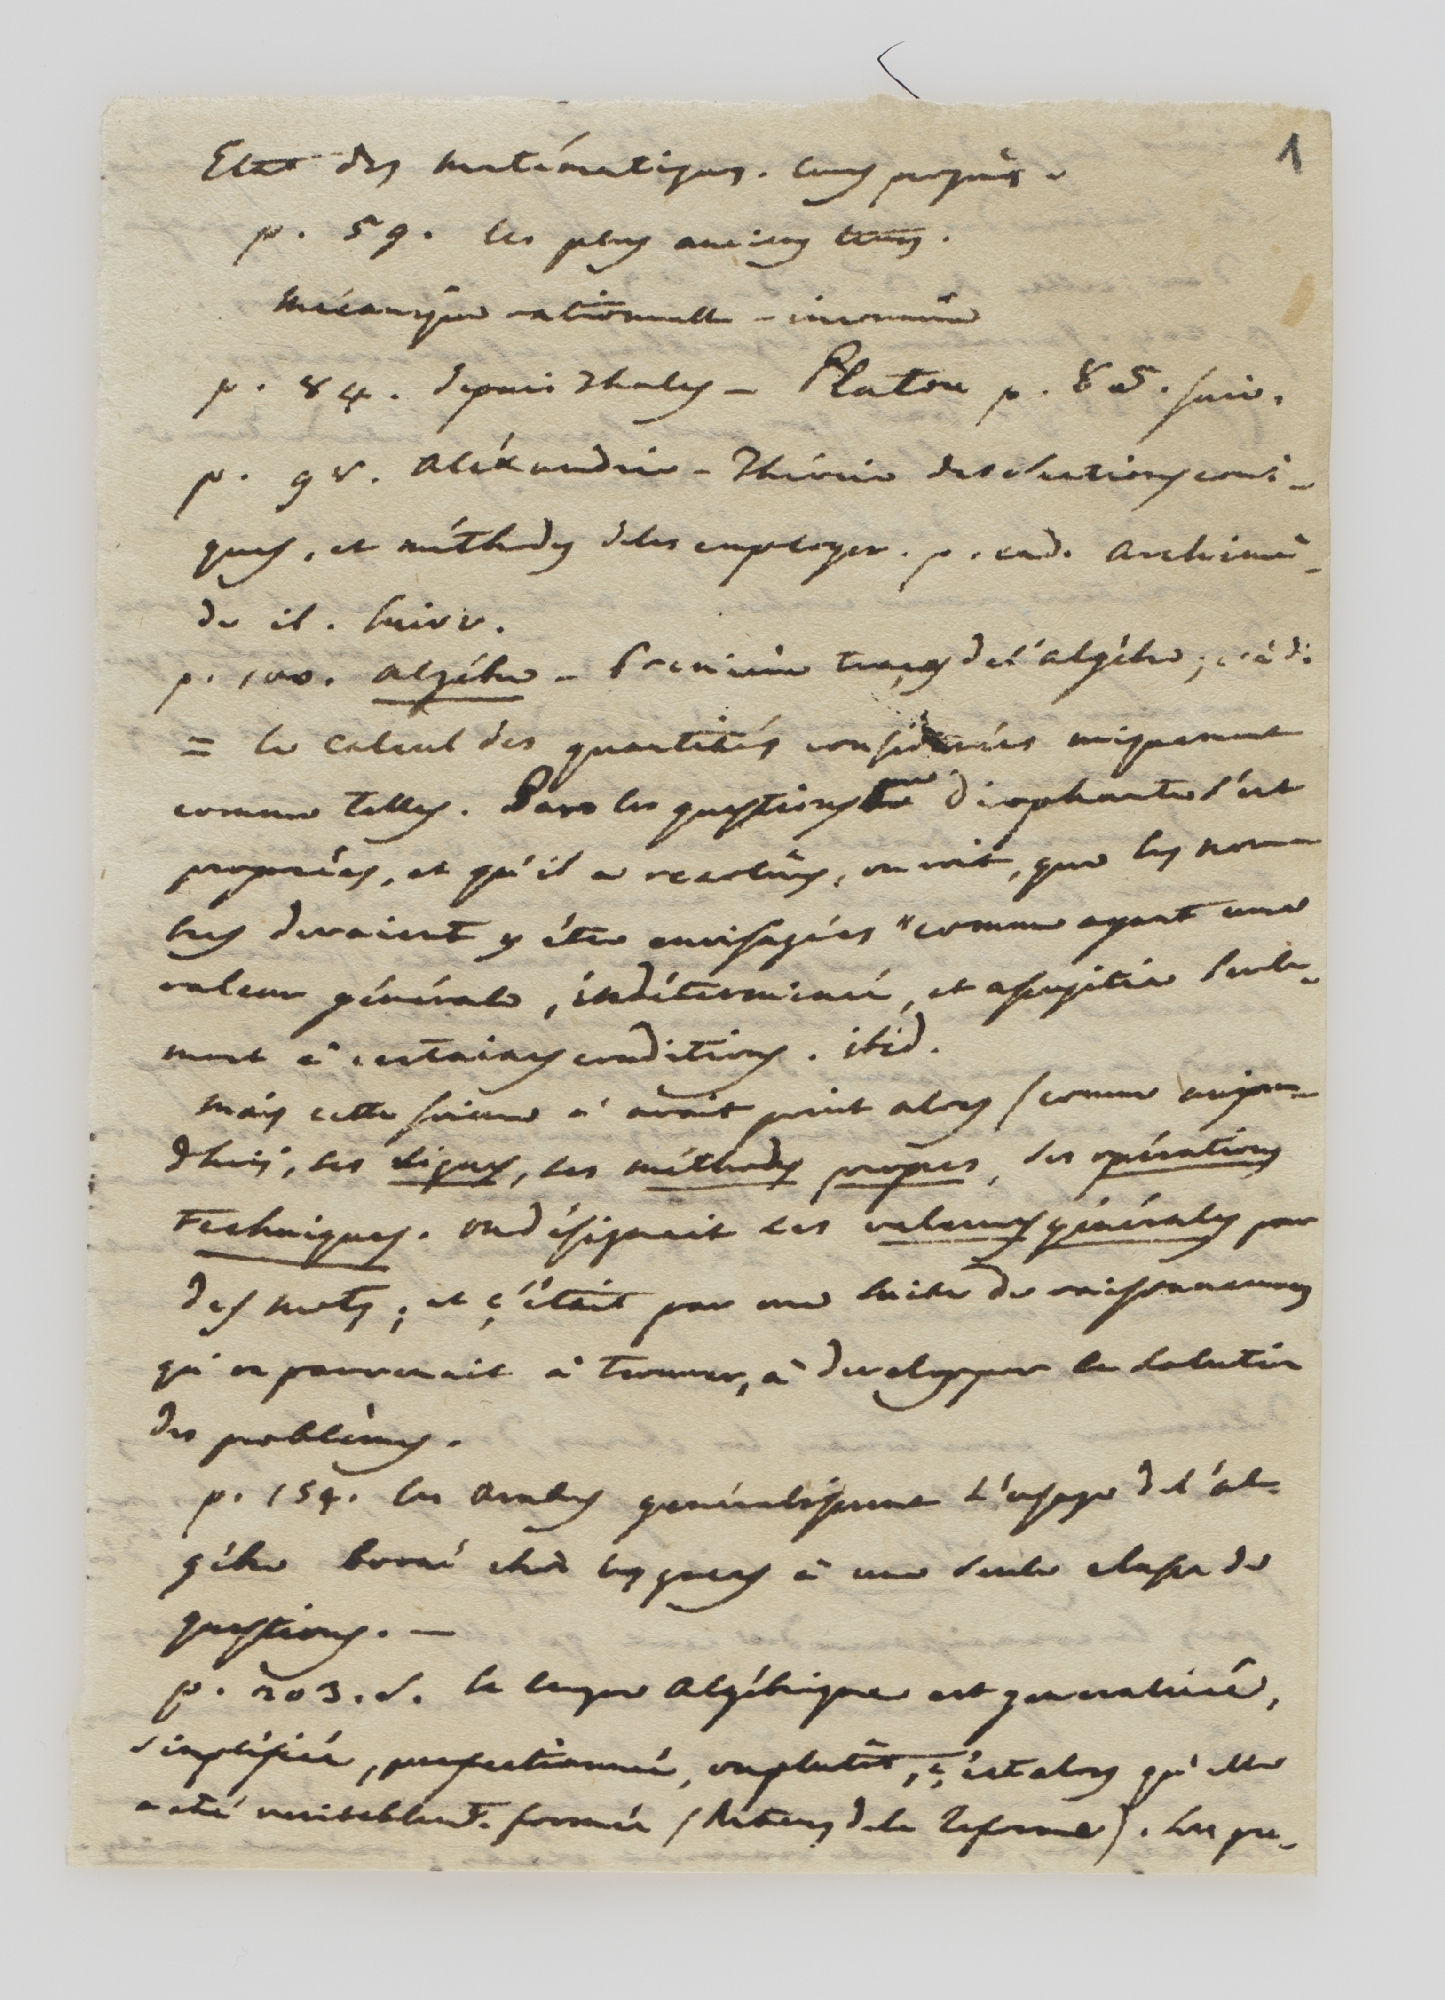 1
Etat des matématiques. leurs progrès.
p. 59. les plus anciens tems.
Mécanique rationnelle - inconnüe
p. 84. depuis Thales - Platon p. 85. suiv.
p. 98. Aléxandrie - Théorie des sections coni-
ques, et méthodes deles employer. p. ead. Archimè-
de ib. suivv.
p. 100. Algébre - Premières traces del'algèbre; c'àdi.
= le calcul des quantités considerées uniquement
comme telles. Dans les questions que Diophante s'est
proposées, et qu'il a resolües, on voit, que les nom
bres devaient y être envisagées "comme ayant une
valeur générale, indéterminée, et assujétie seule-
ment à certaines conditions. ibid.
Mais cette science n'avait point alors (comme aujour-
dhui, ses signes, ses méthodes propres, ses opérations
Techniques. on désignait ces valeurs générales par
des mots; et c'était par une suite de raisonnemens
qu'on parvenait à trouver, à developper la solution
des problèmes.
p. 154. les Arabes generalisèrent l'usage del'al-
gébre borné chés les grecs à une seule classe de
questions. -
p. 203. s. la langue Algébrique est generalisée,
simplifiée, perfectionnée, ouplutôt, c'est alors qu'elle
a eté veritablemt. formée (Au tems dela Reforme). Les pre-